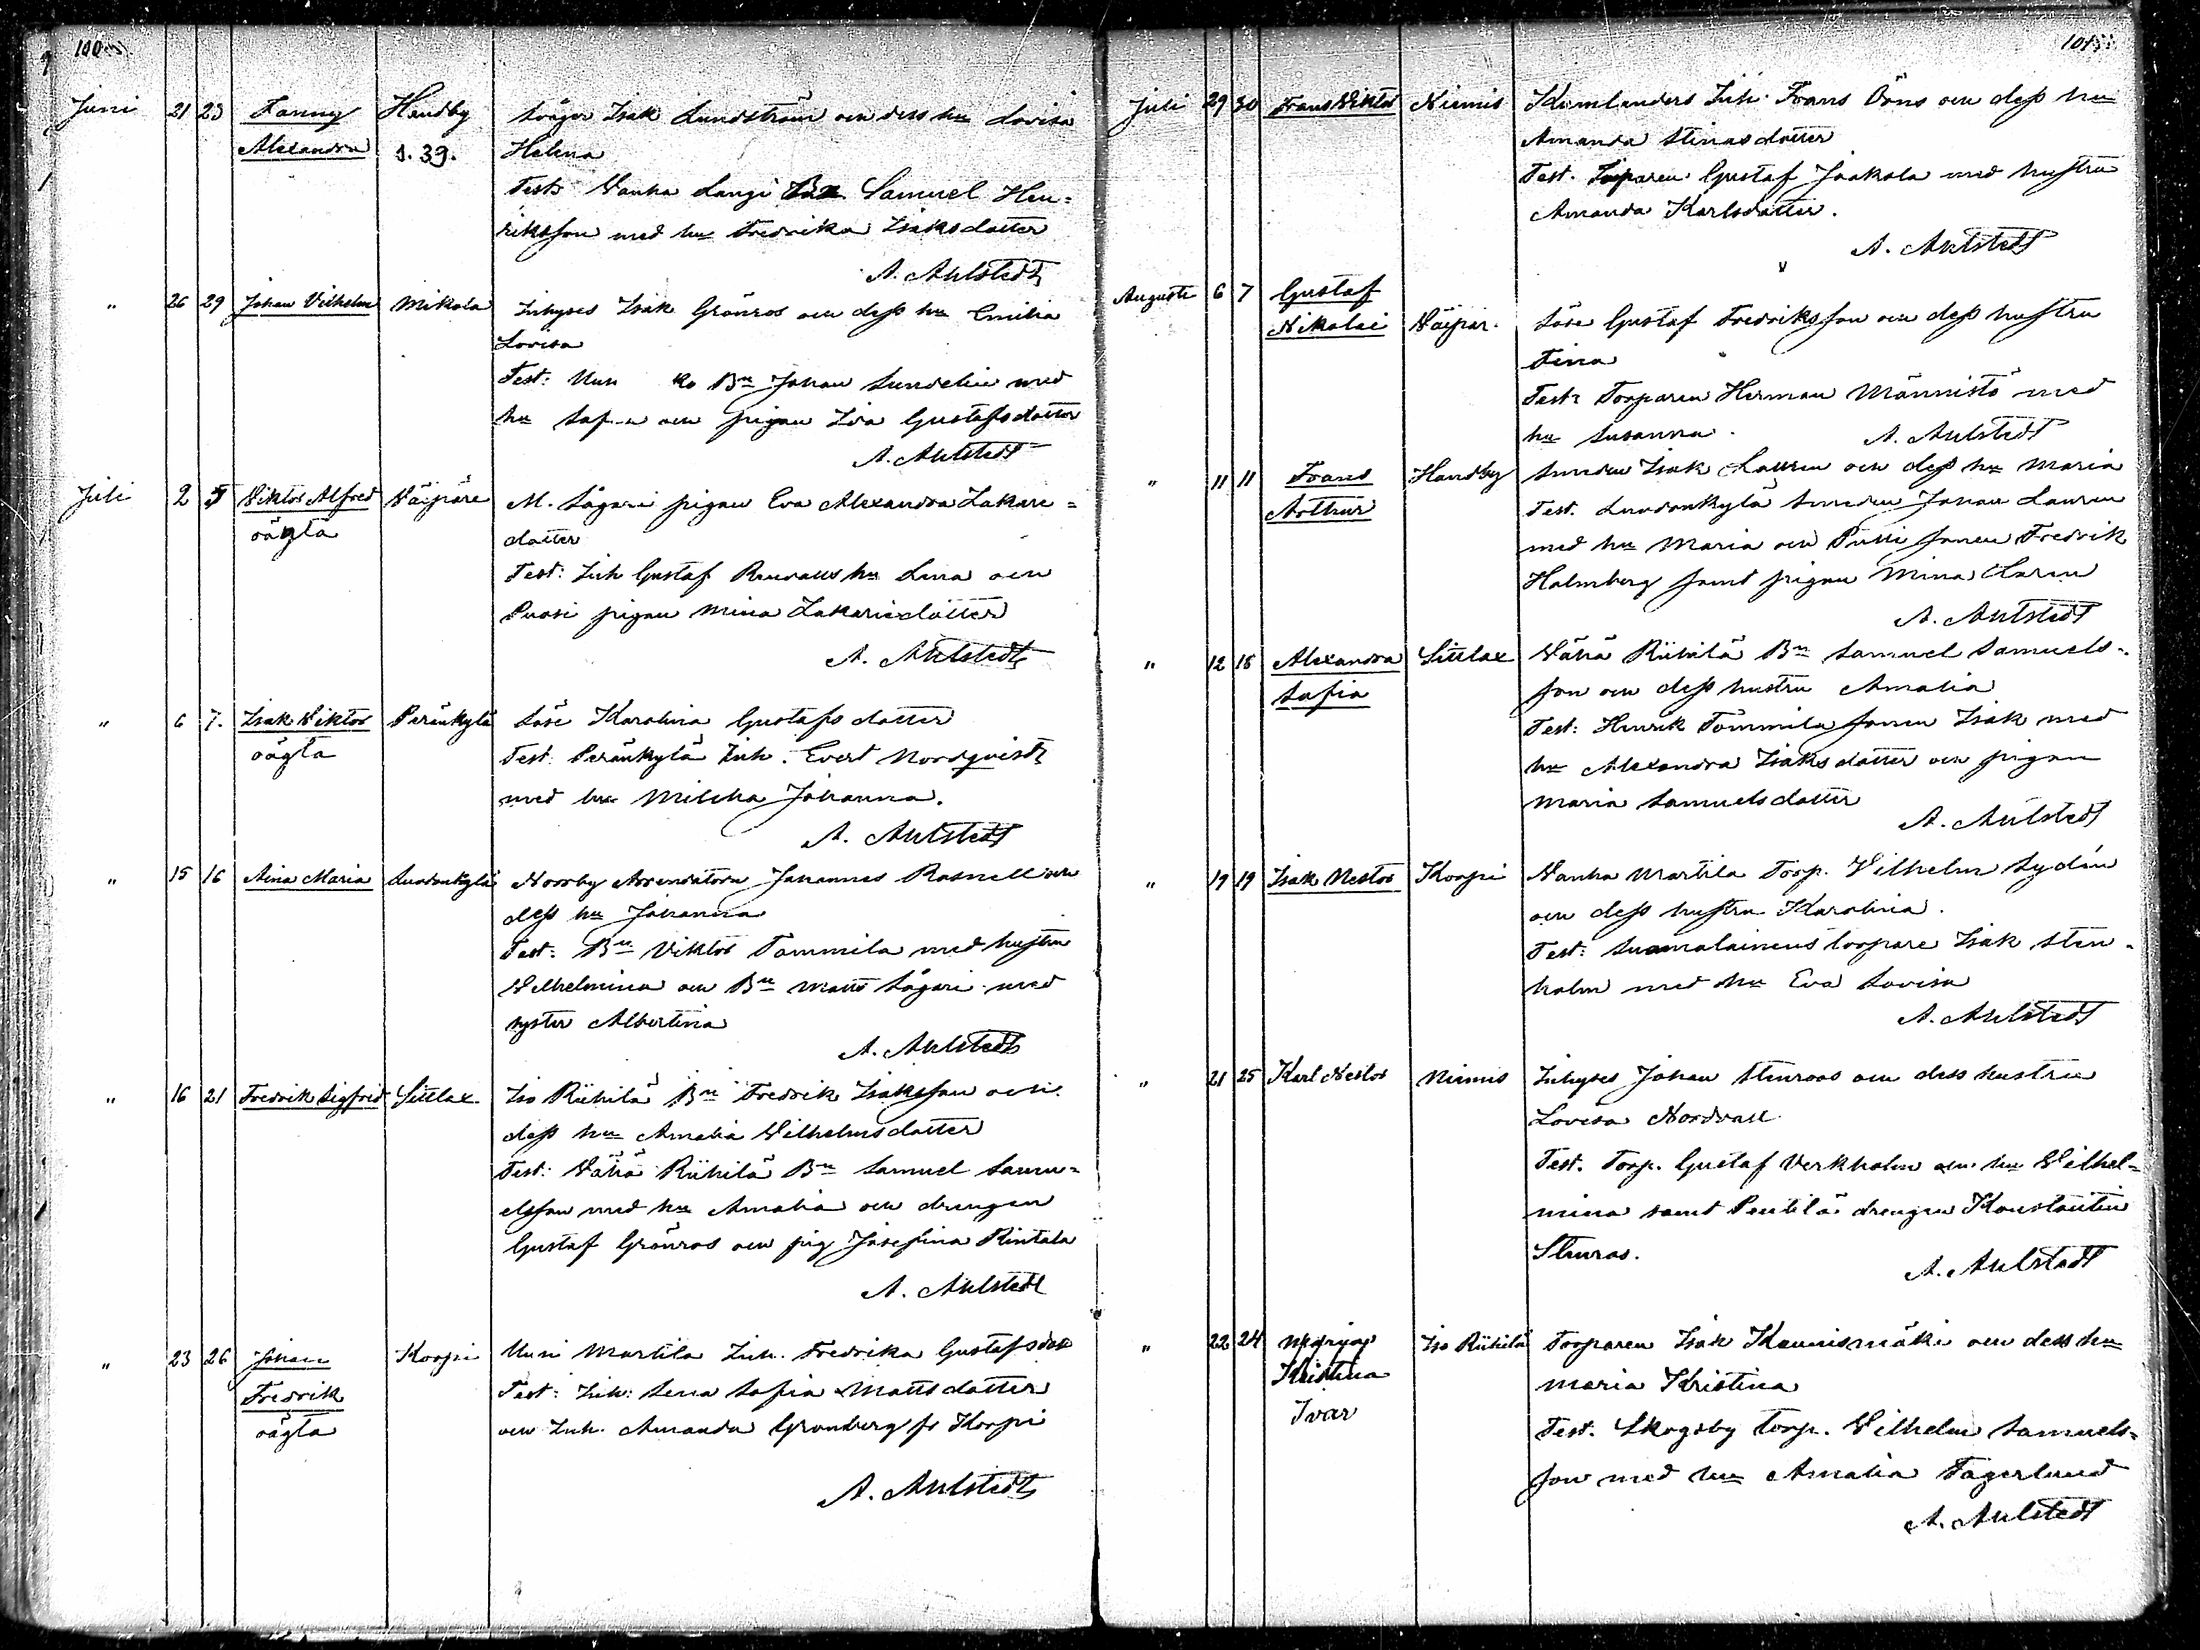 100
Juni 21 23 Fanny Handby Svåger Isak Lundström och dess hu Lovisa
Alexandra s. 39. Helena
Test: Vanha Langi Bn Samuel Hen=
riksson med hu Fredrika Isaksdotter
A. Ahlstedt
" 26 29 Johan Vilhelm Mikola Inhyses Isak Grönros och dess hu Emilia
Lovisa
Test: Bn Johan Sundelin med
hu och pigan Ida Gustafsdotter
A. Ahlstedt
Juli 2 5 Viktor Alfred Väipäre M. Sågari pigan Eva Alexandra Zakari=
oägta dotter
Test: Inh Gustaf hu Lina och
pigan Mina Zakariedotter
A. Ahlstedt
" 6 7. Isak Viktor Peränkylä Löse Karolina Gustafsdotter
oägta Test: Peränkylä Inh. Evert Nordqvist
med hu Milcha Johanna.
A. Ahlstedt
" 15 16 Aina Maria Luodonkylä Norrby Arrendatorn Johannes Rosnell och
dess hu Johanna
Test: Bn Viktor Tommila med hustru
Wilhelmina och Bn Matts Sågari med
syster Albertina
A. Ahlstedt
" 16 21 Fredrik Sigfrid Sittlax Iso Riihilä Bn Fredrik Isaksson och
dess hu Amalia Vilhelmsdotter
Test: Vähä Riihilä Bn Samuel Samu=
elsson med hu Amalia och drengen
Gustaf Grönros och pig Josefina Rintala
A. Ahlstedt
" 23 26 Johan Korpi Uusi Martila Inh. Fredrika Gustafsdot
Fredrik Test: Inh: Lena Sofia Mattsdotter
oägta och Inh. Amanda Gronberg fr Korpi
A. Ahlstedt
101
Juli 29 30 Frans Viktor Niemis Kumlanders Inh. Frans Ööns och dess hu
Amanda Stinasdotter
Test. Torparen Gustaf Jaakola med hustru
Amanda Karlsdotter.
A. Ahlstedt
Augusti 6 7 Gustaf
" Nikolai Väipär. Löse Gustaf Fredriksson och dess hustru
Tina
Test: Torparen Herman Männistö med
hu Susanna. A. Ahlstedt
" 11 11 Frans Handby Smeden Isak Lauren och dess hu Maria
Arthur Test. Luodonkylä Smeden Johan Lauren
med hu Maria och sonen Fredrik
Holmberg samt pigan Mina Lauren
A. Ahlstedt
" 12 18 Alexandra Sittlax Vähä Riihilä Bn Samuel Samuels=
Sofia son och dess hustru Amalia
Test: Henrik Tommila sonen Isak med
hu Alexandra Isaksdotter och pigan
Maria Samuelsdotter
A. Ahlstedt
" 17 19 Isak Nestor Korpi Vanha Martila Torp. Vilhelm Sydén
och dess hustru Karolina.
Test: Suomalainens torpare Isak Sten=
holm med hu Eva Lovisa
A. Ahlstedt
" 21 25 Karl Nestor Niemis Inhyses Johan Stenroos och dess hustru
Lovisa Nordvall
Test. Torp. Gustaf Verkholm och hu Vilhel=
mina samt Penttilä drengen Konstantin
Stenros.
A. Ahlstedt
" 22 24 Iso Riihilä Torparen Isak Kaunismäki och dess hu
Kristina Maria Kristina
Ivar
Test. Skogsby torp. Vilhelm Samuels=
son med hu Amalia Fagerlund
A. Ahlstedt